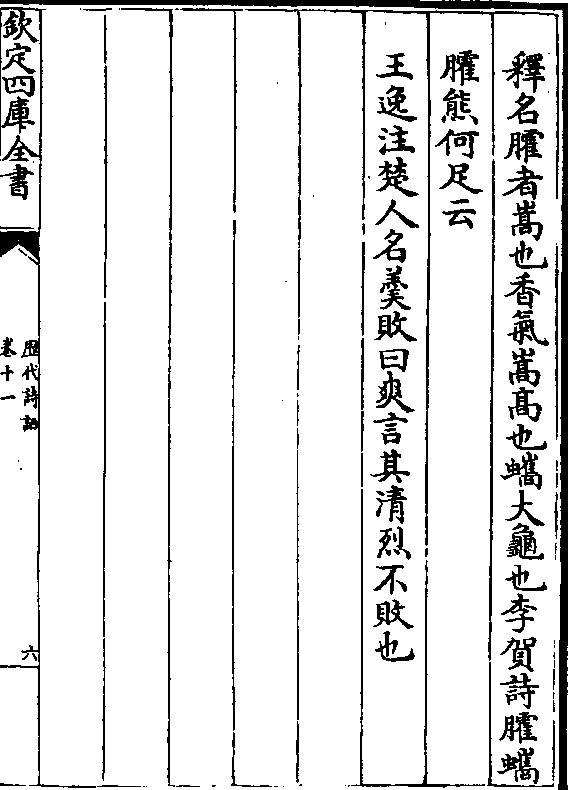 釋名臛者蒿也香氣蒿高也蠵大龜也李賀詩臛蠵
臛熊何足云
王逸注楚人名羹敗曰爽言其清烈不敗也
欽定四庫全書
歷代詩話
卷十一
六